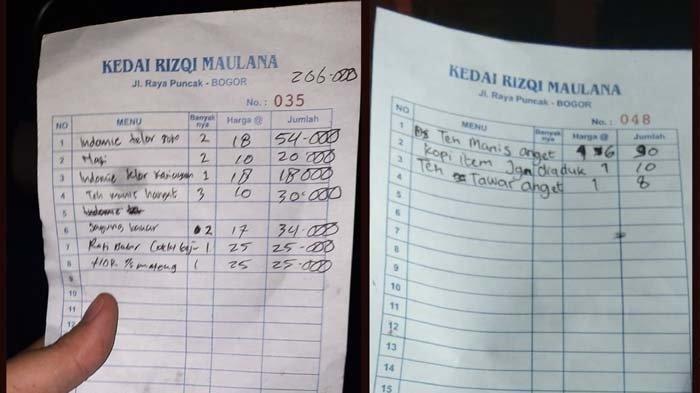 KEDAI RIZQI MAULANA
Jl. Raya Puncak - BOGOR
206-000
No. : 035
NO MENU Banyak nya Harga @ Jumlah
1 Indomie telor 2 18 54-000
2 Nasi 2 10 20.000
3 Indomie telor 1 18 18000
4 Teh manis hangat 3 10 30-000
5
6 bakar 2 17 34-000
7 Roti Bakar (coklat keju) - 1 25 25-000
8 1/2 mateng 1 25 25-000
9
10
11
12
KEDAI RIZQI MAULANA
Jl. Raya Puncak - BOGOR
No. : 048
NO MENU Banyak nya Harga @ Jumlah
1 Teh Manis anget 90
2 kopi item Jgn diaduk 1 10
3 Teh Tawar anget 1 8
4
5
6
7
8
9
10
11
12
13
14
15